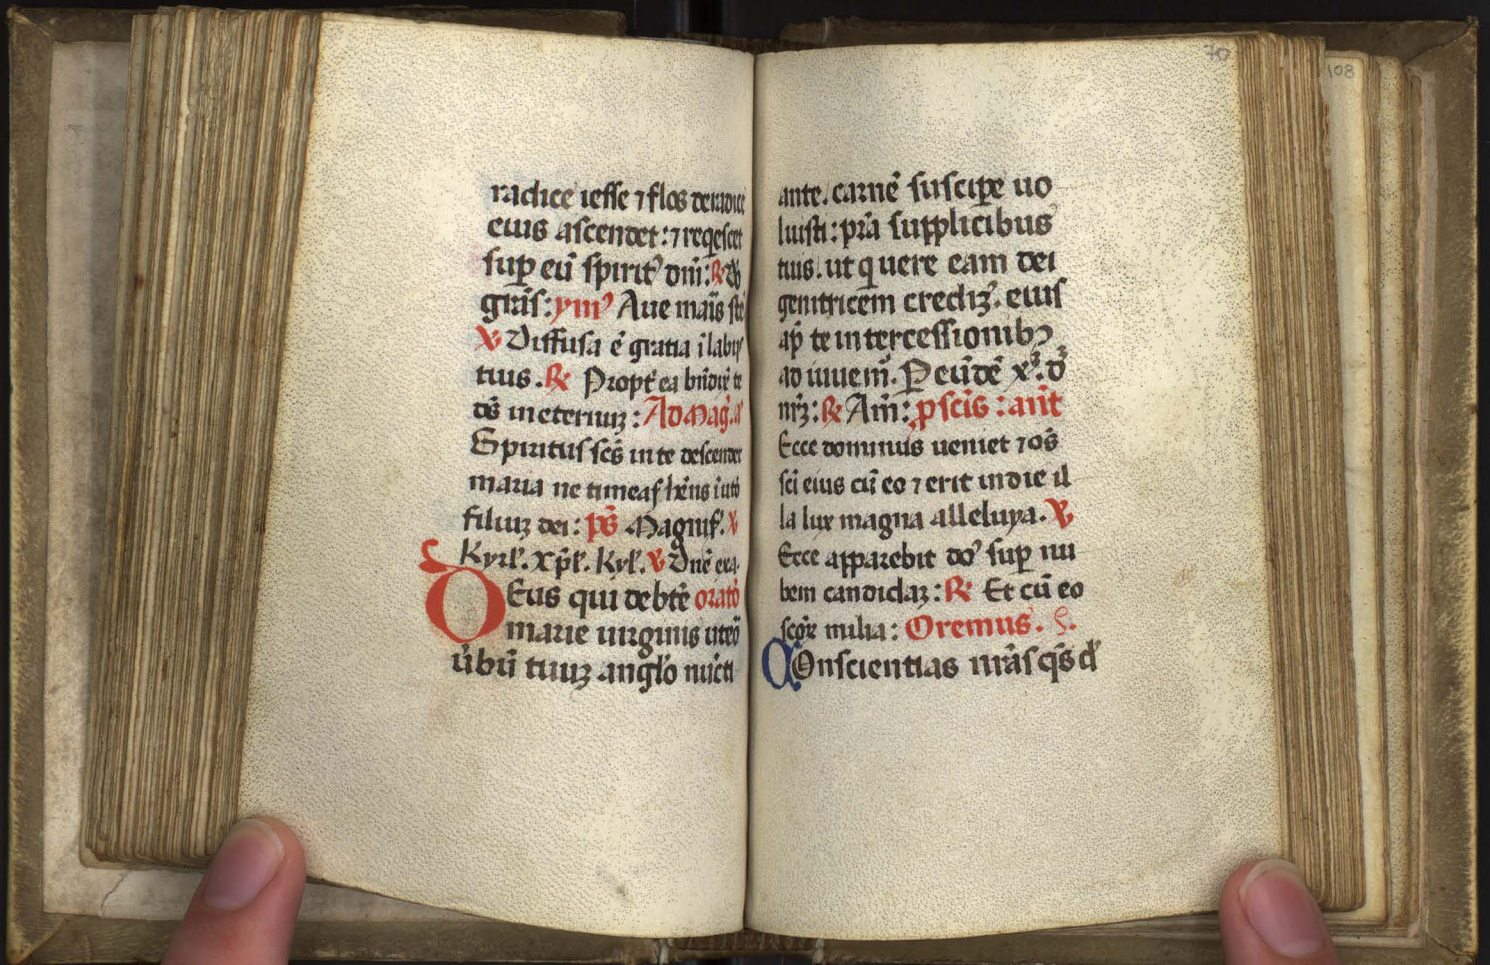 radice iesse ⁊ flos de radice
eius ascendet: ⁊ reqescet
sup eū spiritꝰ dnī: ℟ dō
grās: ymꝰ Aue maris ste
℣ Diffusa ē gratia ī labijs
tuis. ℟ Propt̄ea bn̄dix̄ te
dē̄s in eternuꝫ: Ad Maḡ. añ
Spiritus scs̄ in te descendet
maria ne timeas hn̄s ī uto
filiuꝫ dei: ps̄ Magnif̄. ℣
Kyrl̄. xp̄l̄. Kyl̄. ℣ Dn̄e exa.
DEus qui de btē orato
marie uirginis uteō
ūbū tuuꝫ anglō nūcti
70
108
ante. carnē suscipe uo
luisti: pr̄a supplicibus
tuis. ut q uere eam dei
genitricem crediꝫ. eius
ap̄ te intercessionibꝫ
ad iuuem̄. P eūdē xp̄. d
nr̄ꝫ: ℟ Am̄: p scīs: ant̄
Ecce dominus ueniet ⁊ os̄
sci eius cū eo ⁊ erit in die il
la lux magna alleluya. ℣
Ecce apparebit doꝰ sup nu
bem candidaꝫ: ℟ Et cū eo
scoꝝ milia: Oremus.
COnscientias nr̄as qs̄ d